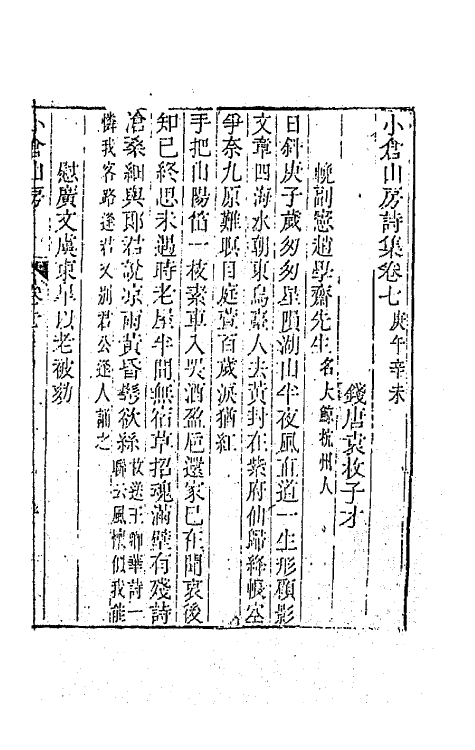 小倉山房詩集卷七 庚午辛未
錢唐袁枚子才
輓副憲趙學齋先生 名大鯨杭州人
日斜庚子歲匆匆星隕湖山半夜風直道一生形顧影
文章四海水朝東烏臺人去黃封在紫府仙歸絳帳空
爭奈九原難瞑目庭萱百歲淚猶紅
手把山陽笛一枝素車入哭酒盈巵還家已在聞哀後
知己終思未遇時老屋半間無宿草招魂滿壁有殘詩
滄桑細與郎君說凉雨黃昏鬢欲絲 枚送王卿華詩一聯云風懷似我能
憐我客路逢君又別君公逢人誦之
慰廣文虞東皐以老被劾
小倉山房
卷七